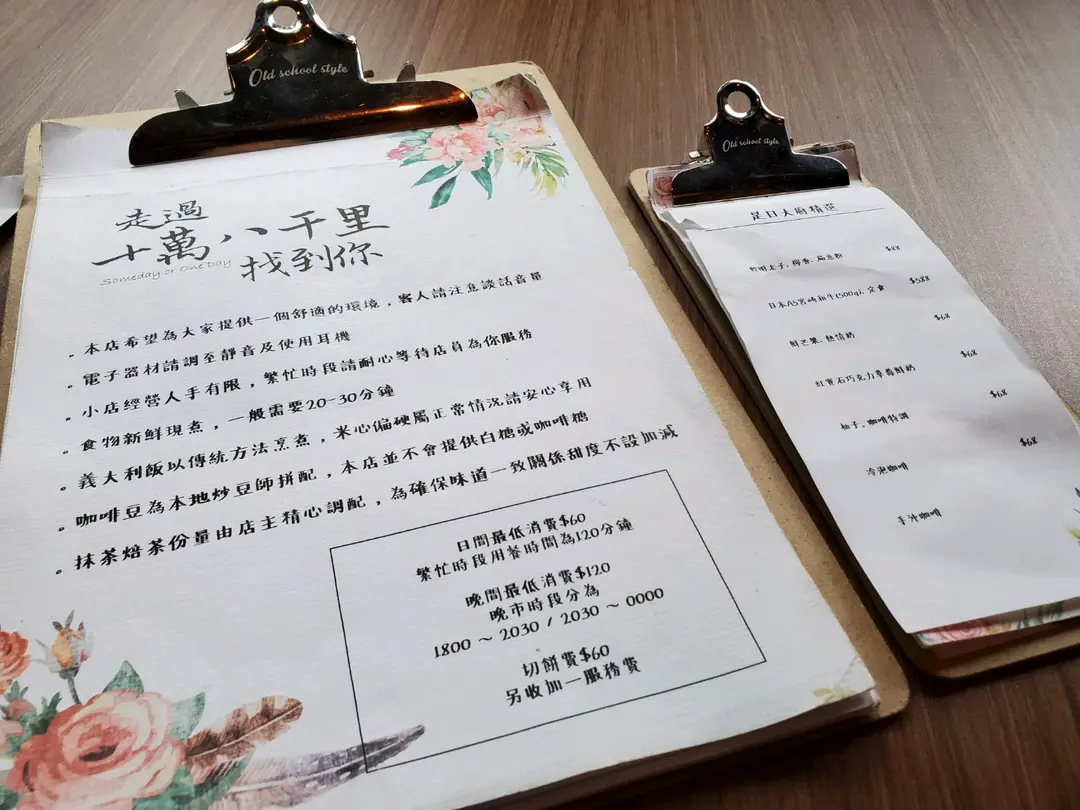 Old school style
走過
十萬八千里
找到你
Someday or One Day
。本店希望為大家提供一個舒適的環境,客人請注意談話音量
。電子器材請調至靜音及使用耳機
。小店經營人手有限,繁忙時段請耐心等待店員為你服務
。食物新鮮現煮,一般需要20-30分鐘
。義大利飯以傳統方法烹煮,米心偏硬屬正常情況請安心享用
。咖啡豆為本地炒豆師拼配,本店並不會提供白糖或咖啡糖
。抹茶焙茶份量由店主精心調配,為確保味道一致關係甜度不設加減
日間最低消費$60
繁忙時段用餐時間為120分鐘
晚間最低消費$120
晚市時段分為
1800 ~ 2030 / 2030 ~ 0000
切餅費$60
另收加一服務費
Old school style
是日大廚精選
明太子, 扁意粉 $88
日本A5宮崎和牛(500g), 定食 $588
鮮芒果, 熱情奶 $68
紅寶石巧克力草莓鮮奶 $68
柚子, 咖啡特調 $68
冷泡咖啡 $68
手沖咖啡